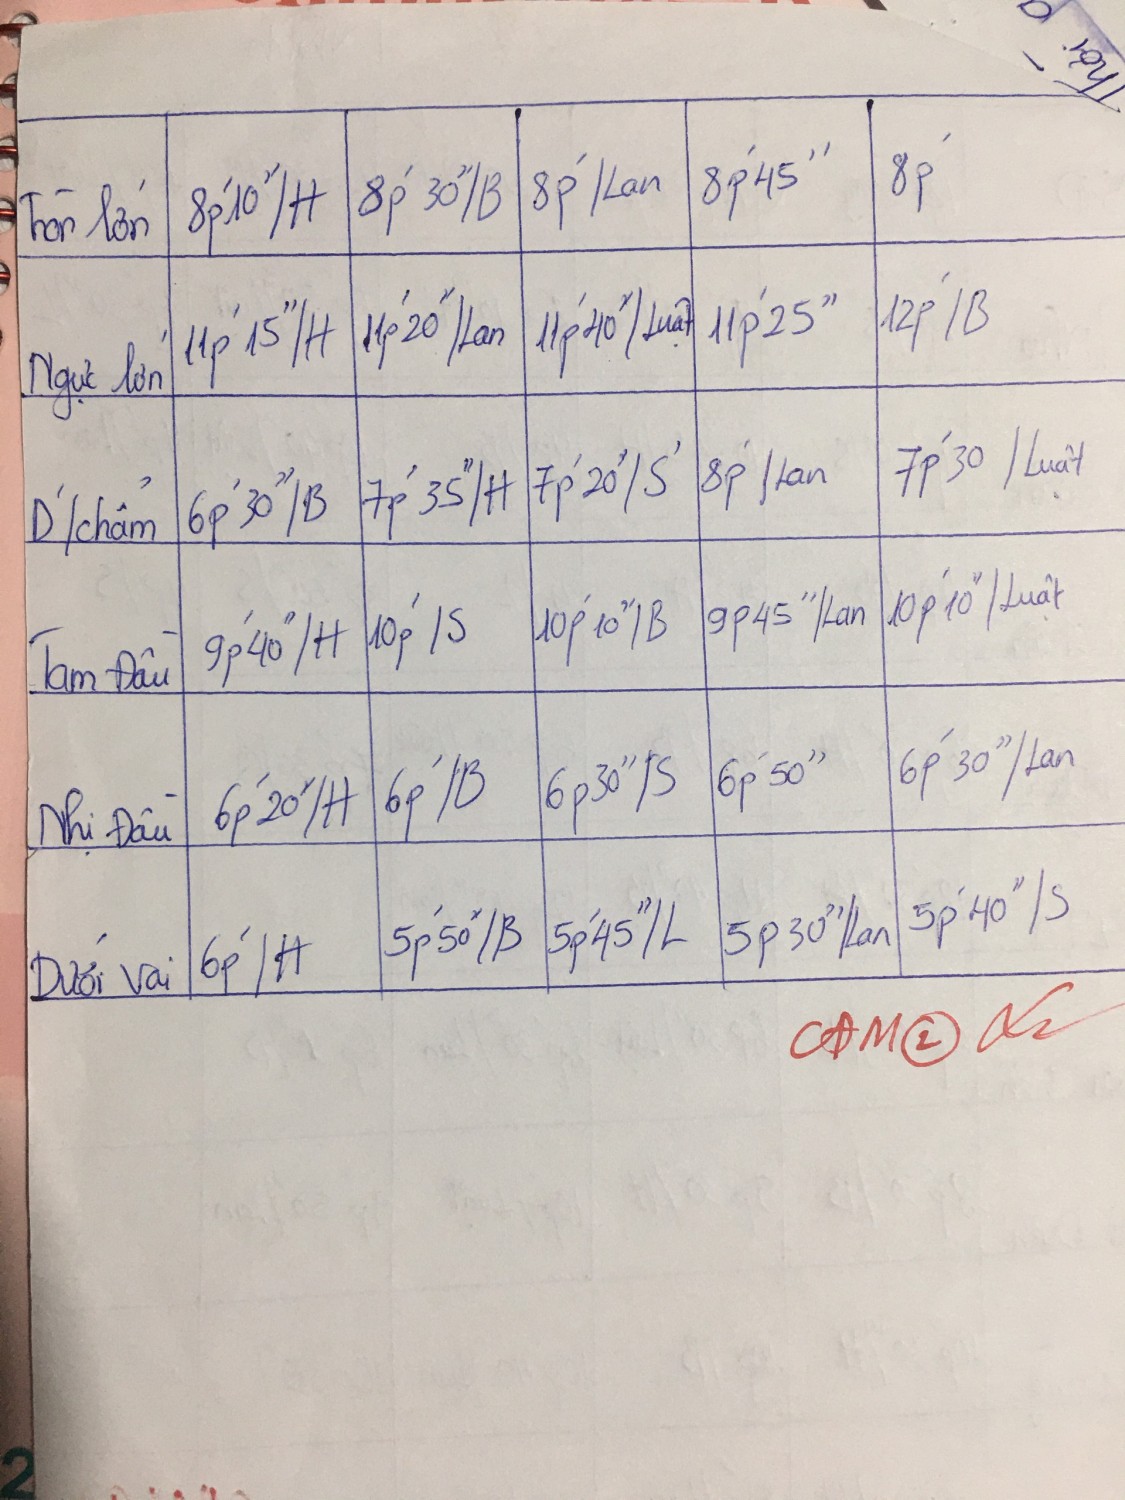 Thời
Tròn lớn 8p'10"/H 8p'30"/B 8p'/Lan 8p'45" 8p'
Ngực lớn 11p'15"/H 11p'20"/Lan 11p'40"/Luật 11p'25" 12p'/B
D/chấm 6p'30"/B 7p'35"/H 7p'20"/S 8p'/Lan 7p'30/Luật
Tam Đầu 9p'40"/H 10p'/S 10p'10"/B 9p45"/Lan 10p'10"/Luật
Nhị Đầu 6p'20"/H 6p'/B 6p30"/S 6p'50" 6p'30"/Lan
Dưới vai 6p'/H 5p'50"/B 5p'45"/L 5p30"/Lan 5p'40"/S
CAM 2
2